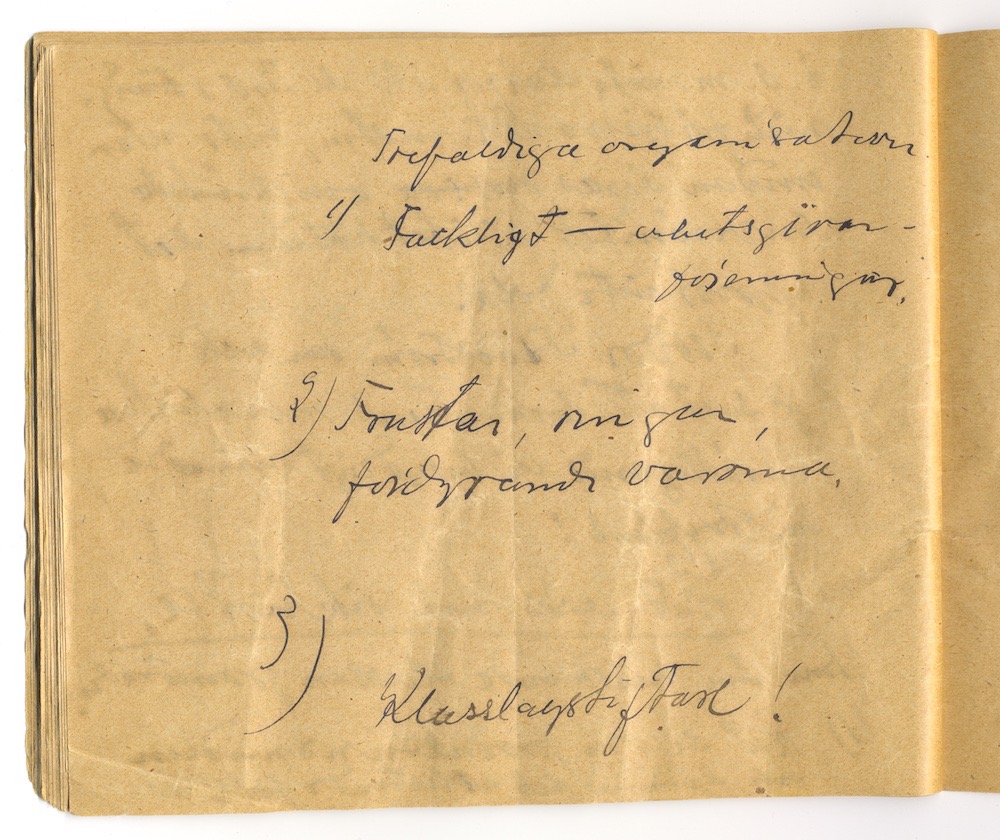 Trefaldiga organisation
1) Fackligt — arbetsgivar-
föreningar.
2) Trustar, ringar,
fördyrande varorna.
3)
Klasslagstiftare!